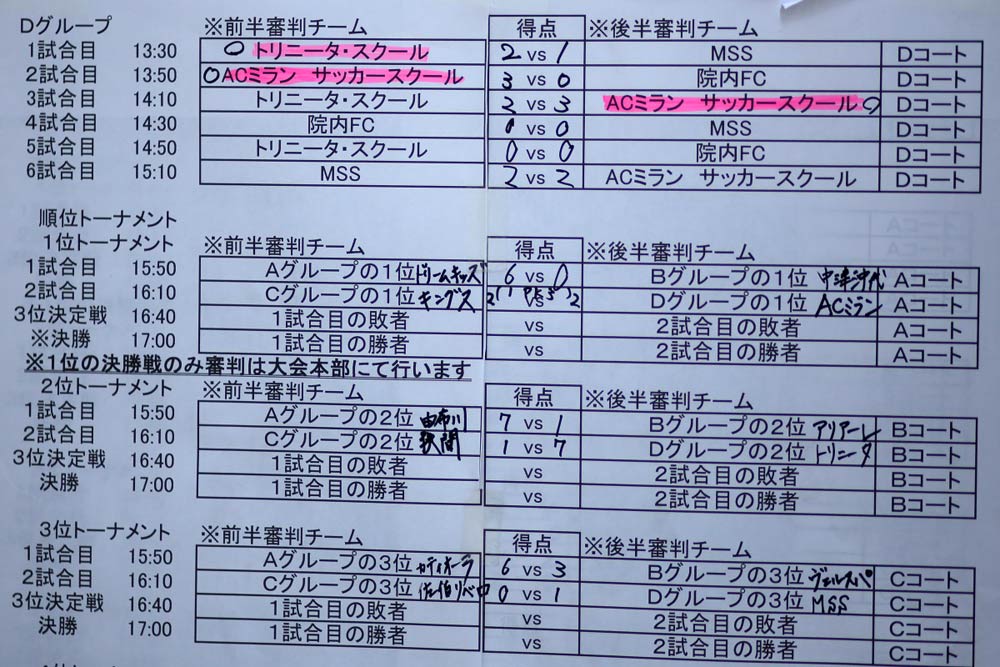 Dグループ ※前半審判チーム 得点 ※後半審判チーム
1試合目 13:30 トリニータ・スクール 2 vs 1 MSS Dコート
2試合目 13:50 ACミラン サッカースクール 3 vs 0 院内FC Dコート
3試合目 14:10 トリニータ・スクール 2 vs 3 ACミラン サッカースクール Dコート
4試合目 14:30 院内FC vs 0 MSS Dコート
5試合目 14:50 トリニータ・スクール 0 vs 0 院内FC Dコート
6試合目 15:10 MSS 2 vs 2 ACミラン サッカースクール Dコート
順位トーナメント
1位トーナメント ※前半審判チーム 得点 ※後半審判チーム
1試合目 15:50 Aグループの1位 ドリームキッズ 6 vs 0 Bグループの1位 中津沖代 Aコート
2試合目 16:10 Cグループの1位 キングス 2 PK 2 Dグループの1位 ACミラン Aコート
3位決定戦 16:40 1試合目の敗者 vs 2試合目の敗者 Aコート
※決勝 17:00 1試合目の勝者 vs 2試合目の勝者 Aコート
※1位の決勝戦のみ審判は大会本部にて行います
2位トーナメント ※前半審判チーム 得点 ※後半審判チーム
1試合目 15:50 Aグループの2位 由布川 7 vs 1 Bグループの2位 アリアーレ Bコート
2試合目 16:10 Cグループの2位 挾間 1 vs 7 Dグループの2位 トリニータ Bコート
3位決定戦 16:40 1試合目の敗者 vs 2試合目の敗者 Bコート
決勝 17:00 1試合目の勝者 vs 2試合目の勝者 Bコート
3位トーナメント ※前半審判チーム 得点 ※後半審判チーム
1試合目 15:50 Aグループの3位 カティオーラ 6 vs 3 Bグループの3位 ヴェルスパ Cコート
2試合目 16:10 Cグループの3位 佐伯リベロ 0 vs 1 Dグループの3位 MSS Cコート
3位決定戦 16:40 1試合目の敗者 vs 2試合目の敗者 Cコート
決勝 17:00 1試合目の勝者 vs 2試合目の勝者 Cコート